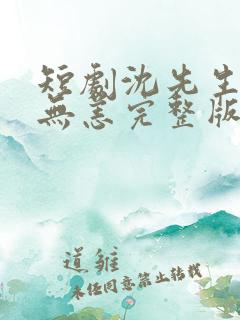 短劇沈先生
無恙完整版
道雛
未经同意禁止转载